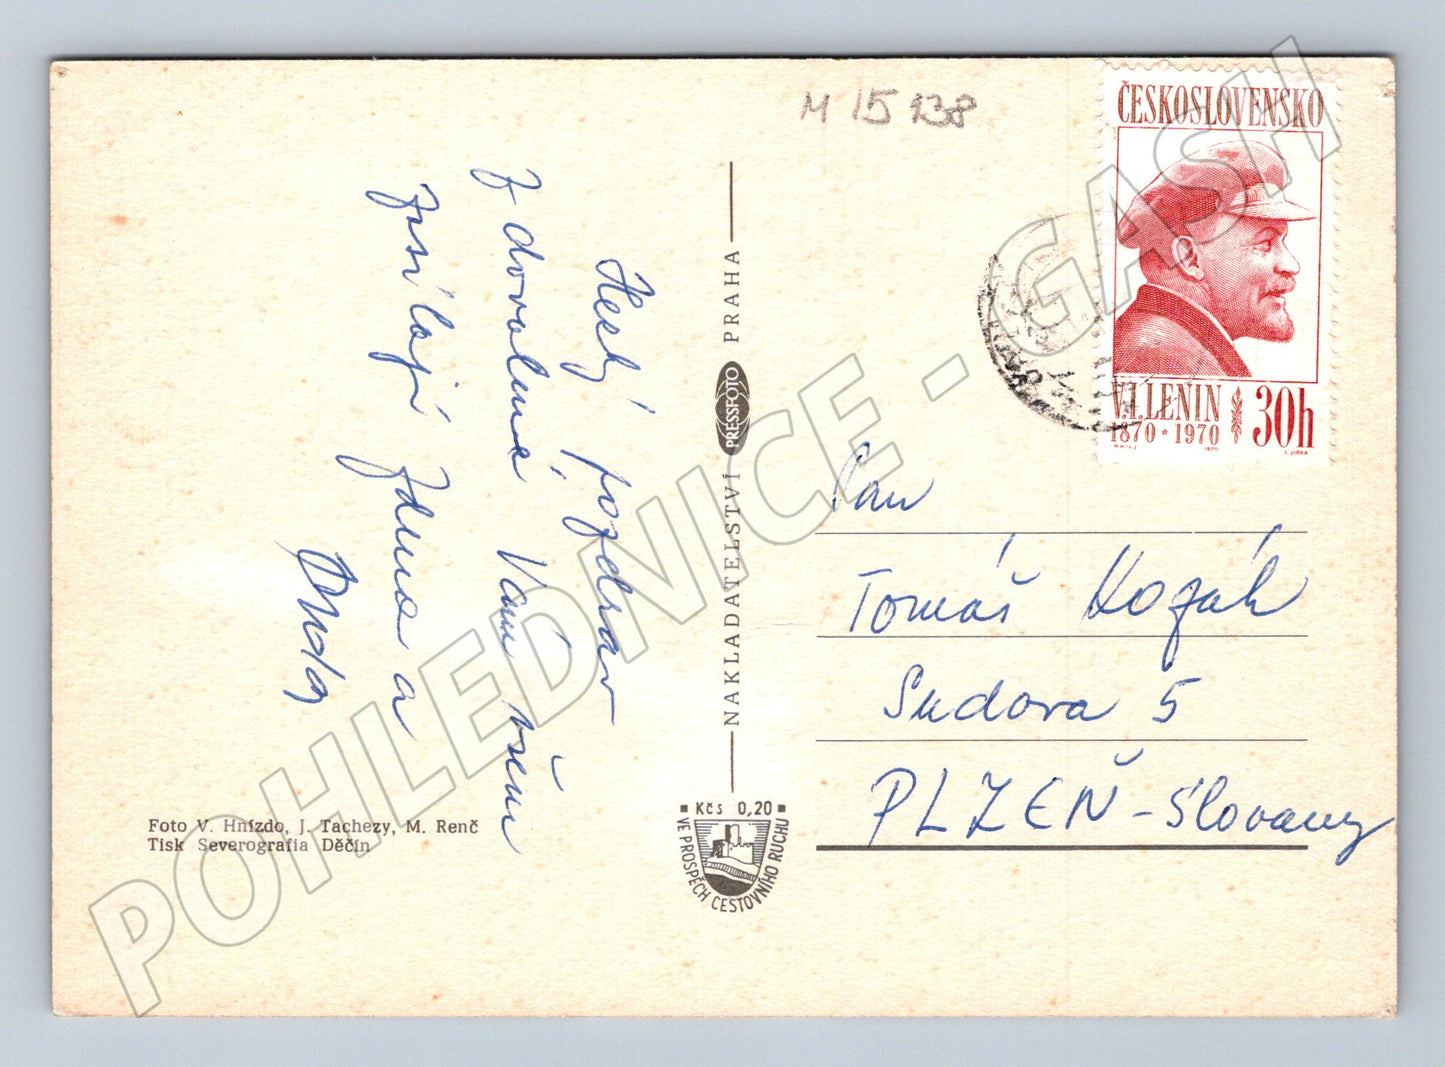 M 15 138
ČESKOSLOVENSKO
V.I.LENIN
1870 * 1970
30h
Hezký pozdrav
z dovolené Vám všem
posílají Zdena a
NAKLADATELSTVÍ PRESSFOTO PRAHA
Pan
Tomáš Kozák
Sudova 5
PLZEŇ-Slovany
Foto V. Hnízdo, J. Tachezy, M. Renč
Tisk Severografia Děčín
Kčs 0,20
VE PROSPĚCH CESTOVNÍHO RUCHU
POHLEDNICE - GASH